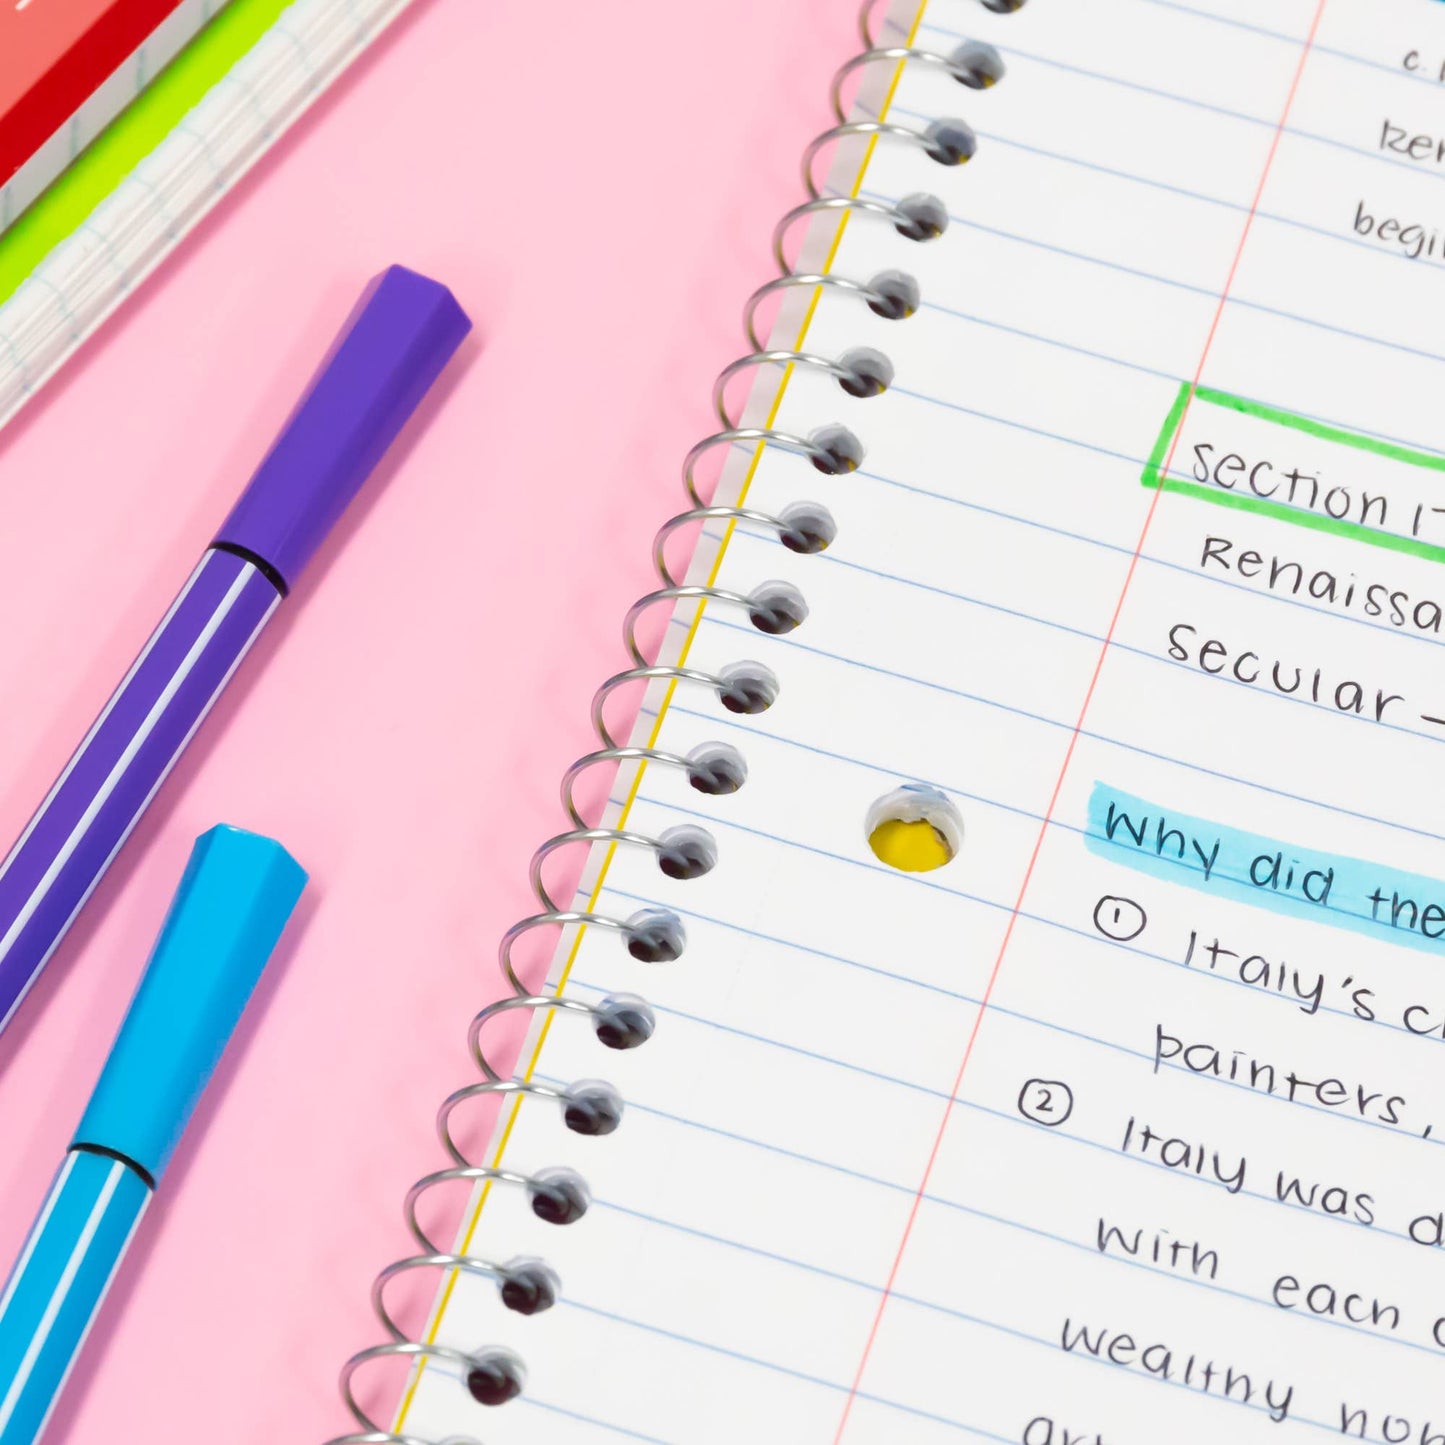 c.
begin
section 1
Renaissa
secular –
why did the
① Italy's c
painters,
② Italy was d
with each
wealthy non
art